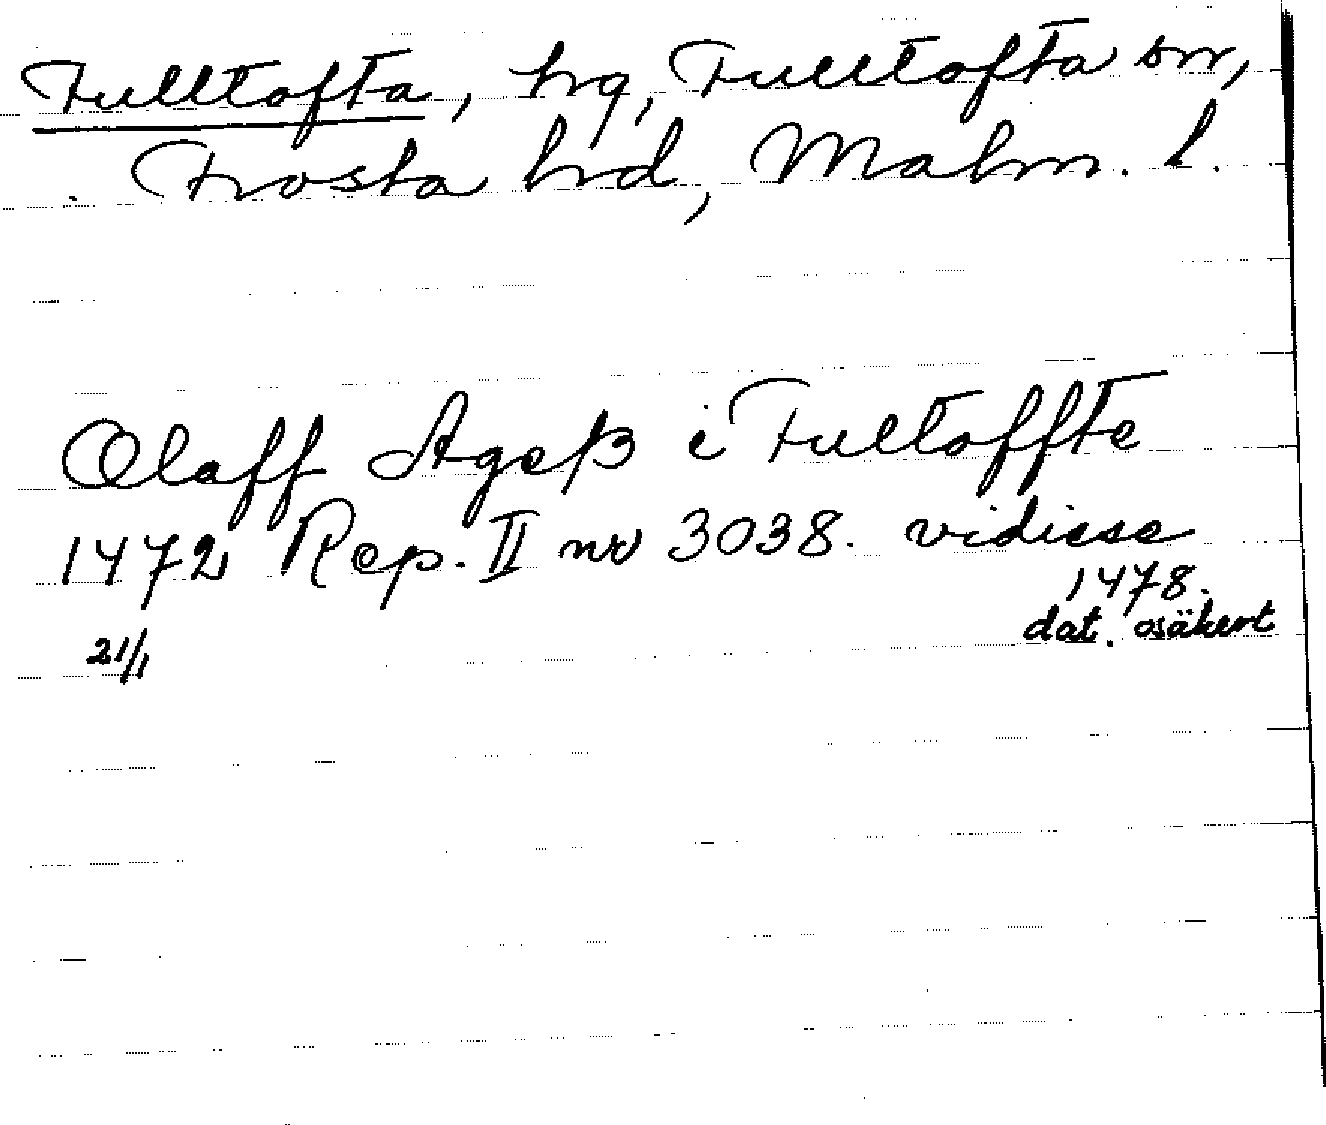 Fulltofta, hg, Fulltofta sn,
Frosta hd, Malm. l.
Olaff Ageß i Fultoffte
1472 Rep. II nr 3038. vidisse
1478.
21/1 dat. osäkert